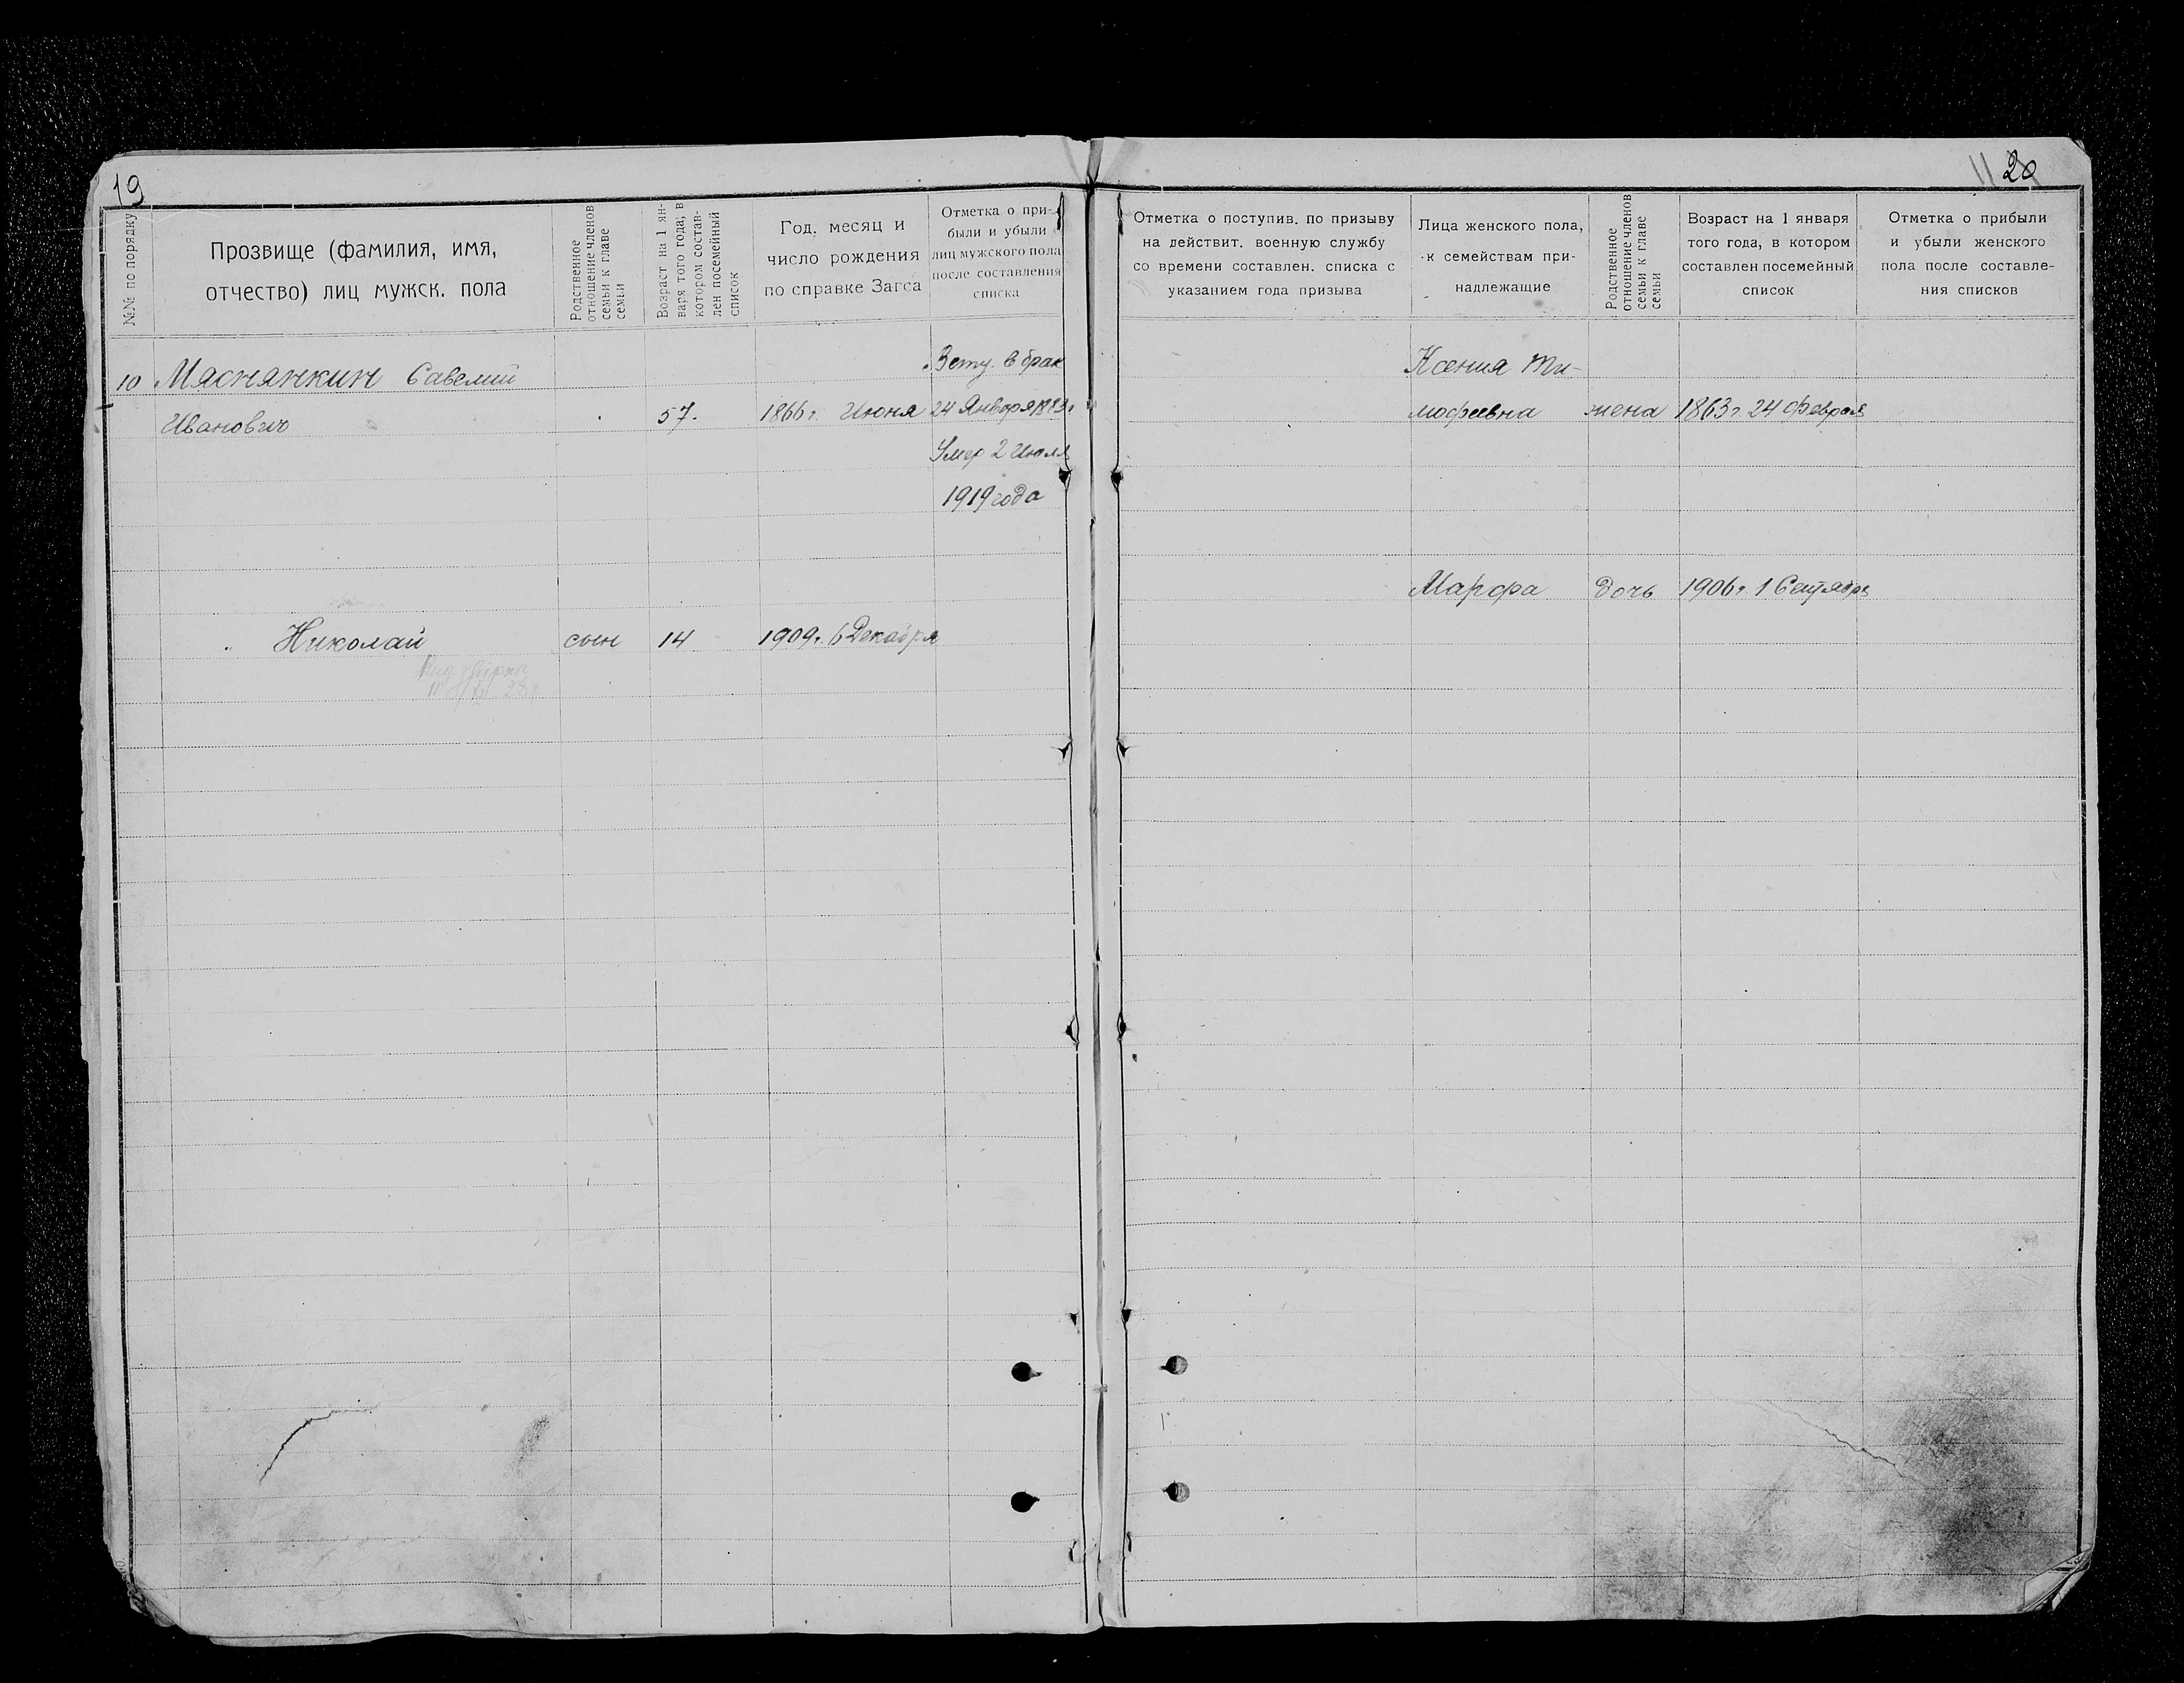 19
№№ по порядку
Прозвище (фамилия, имя,
отчество) лиц мужск. пола
Родственное
отношение членов
семьи к главе
семьи
Возраст на 1 ян-
варя того года, в
котором состав-
лен посемейный
список
Год, месяц и
число рождения
по справке Загса
Отметка о при-
были и убыли
лиц мужского пола
после составления
списка
10 Маснянкин Савелий
Иванович 57. 1866 г. Июня
Всту. в брак
24 Января 1883 г
Умер 2 Июля
1919 года
Николай сын 14 1909 г. 6 Декабря
20
Отметка о поступив. по призыву
на действит. военную службу
со времени составлен. списка с
указанием года призыва
Лица женского пола,
к семействам при-
надлежащие
Родственное
отношение членов
семьи к главе
семьи
Возраст на 1 января
того года, в котором
составлен посемейный
список
Отметка о прибыли
и убыли женского
пола после составле-
ния списков
Ксения Ти-
мофеевна жена 1863 г 24 Февраля
Марфа дочь 1906 г. 1 Сентября